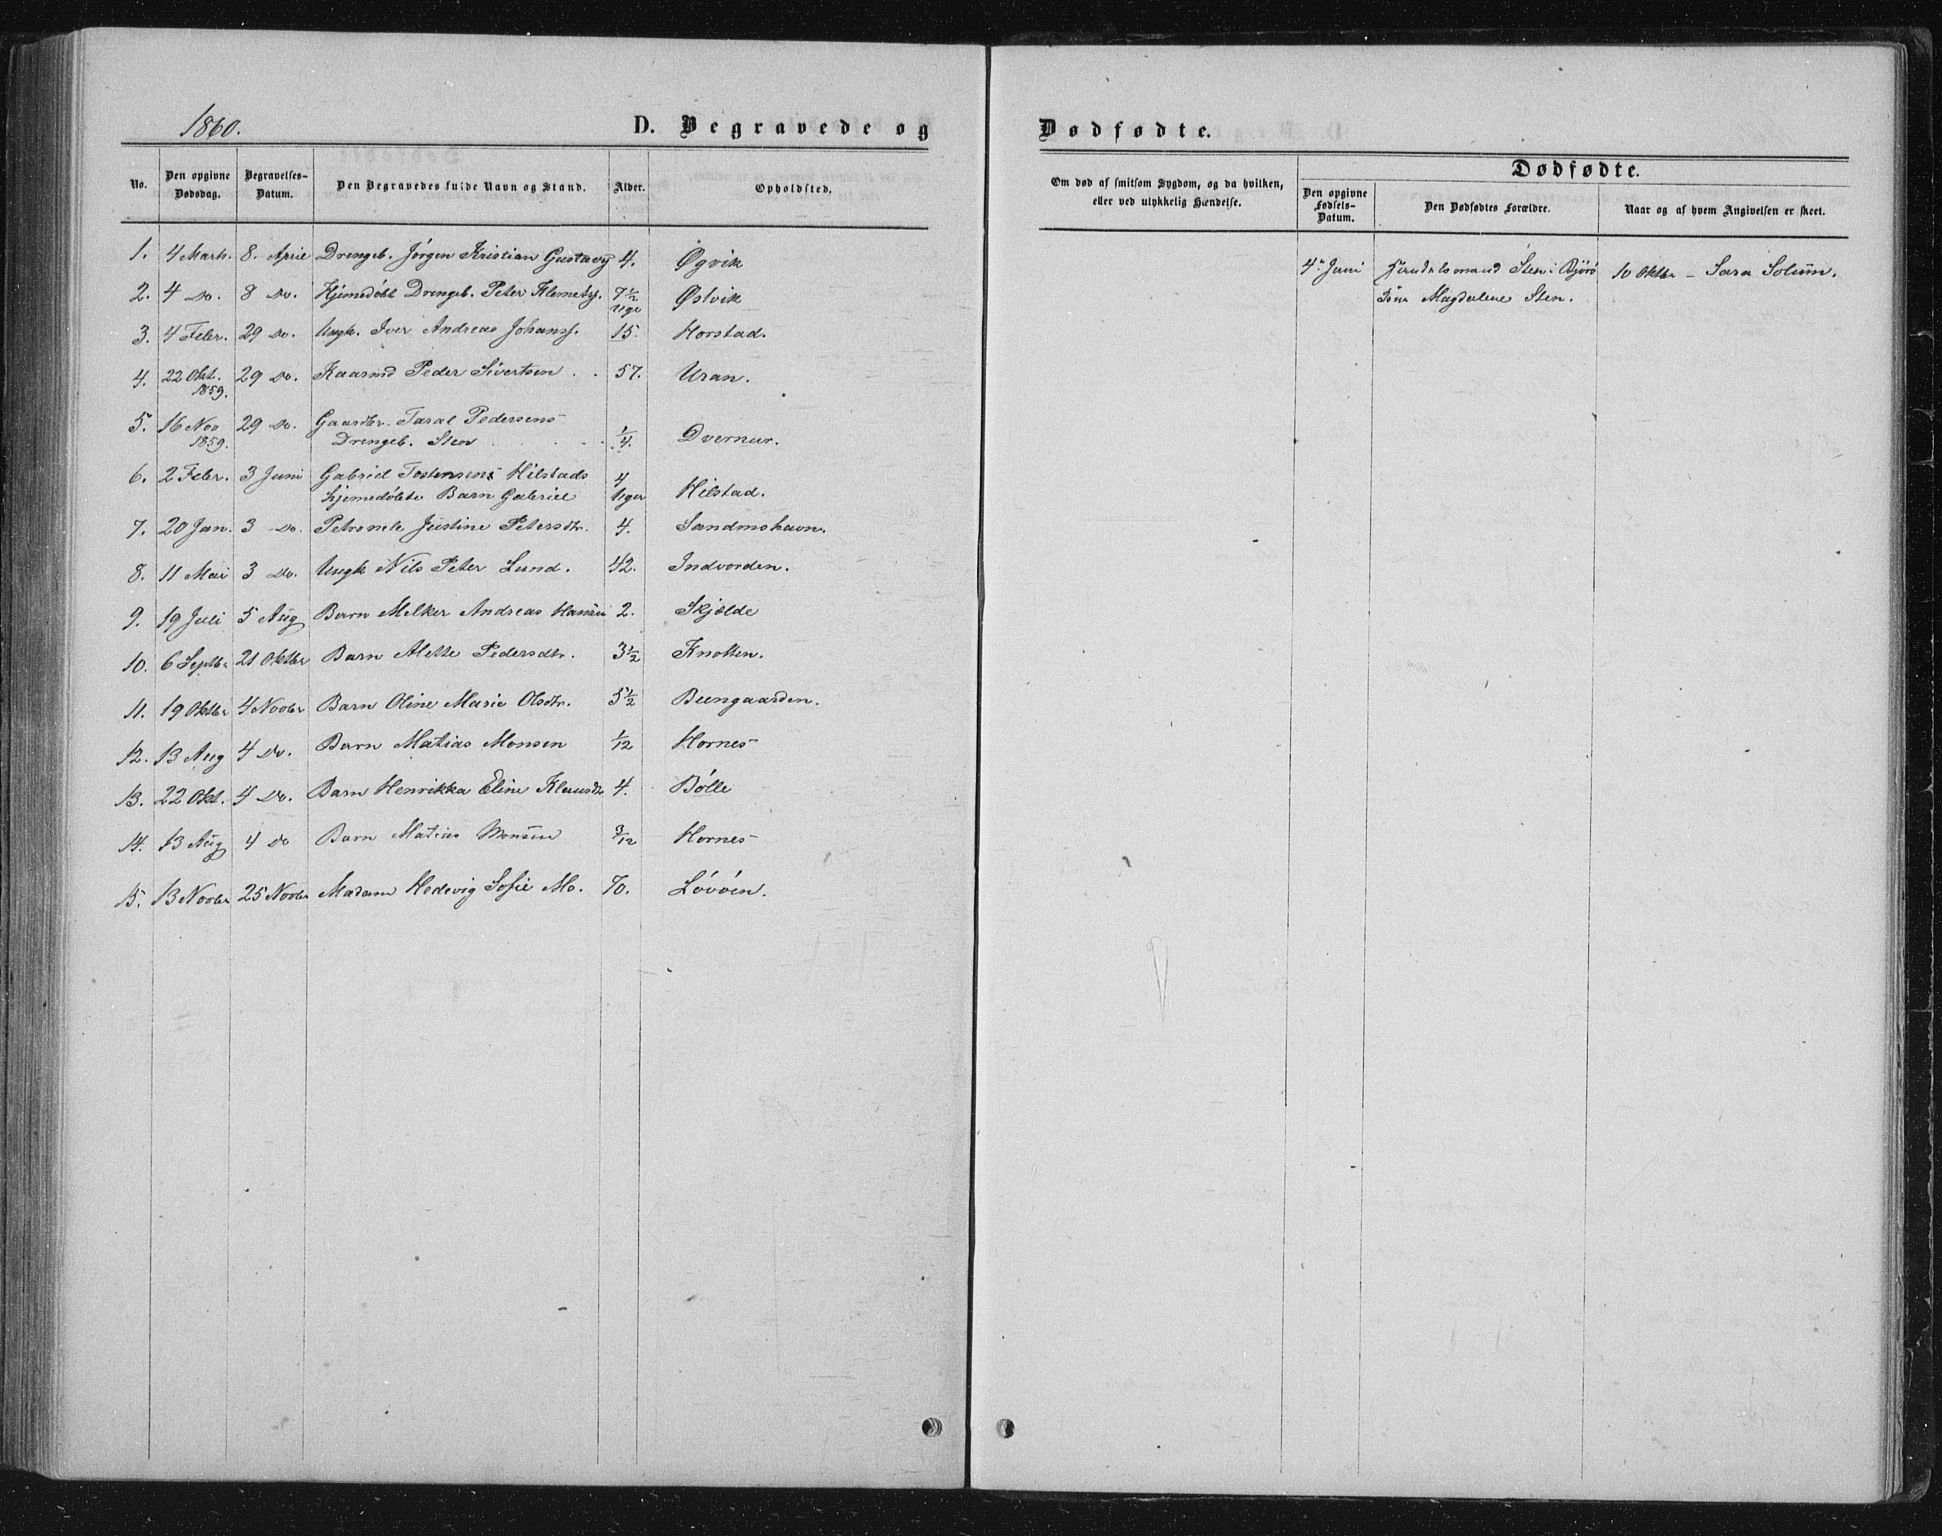 1860.
D. Begravede og
No.
Den opgivne Dødsdag.
Begravelses-Datum.
Den Begravedes fulde Navn og Stand.
Alder.
Opholdsted.
1. 4 Marts. 8. April Drengeb. Jörgen Kristian Gustavs 4. Øgvik
2. 4 Do. 8 Do. Hjemedöbt Drengeb. Peter Klemets. 7½ Uger Østvik
3. 4 Febr. 29 Do. Ungk. Iver Andreas Johans. 15. Horstad.
4. 22 Okt. 1859. 29 Do. Kaarmd Peder Sivertsen . . 57. Uran.
5. 16 Nov 1859. 29 Do. Gaardbr. Taral Pedersens
Drengeb. Sten 1/4. Dvernur.
6. 2 Febr. 3 Juni Gabriel Tostensens Hilstads
hjemedöbte Barn Gabriel 4 Uger Hilstad.
7. 20 Jan. 3 Do. Petronele Justine Petersdtr. 4. Sandmohavn.
8. 11 Mai 3 Do. Ungk Nils Peter Lund. 42. Indvorden.
9. 19 Juli 5 Aug Barn Melker Andreas Hansen 2. Skjelde
10. 6 Septbr 21 Oktbr Barn Alette Pedersdtr. 3½ Knotten.
11. 19 Oktbr 4 Novbr Barn Oline Marie Olsdtr. 5½ Beengaarden.
12. 13 Aug 4 Do. Barn Matias Monsen 1/12 Hornes
13. 22 Okt. 4 Do. Barn Henrikka Eline Klausdtr 4. Bölle
14. 13 Aug 4 Do Barn Matias Monsen 3/12 Hornes
15. 13 Novbr 25 Novbr Madam Hedevig Sofie Mo. 70. Lövöen.
Dødfødte.
Om død af smitsom Sygdom, og da hvilken,
eller ved ulykkelig Hændelse.
Dødfødte.
Den opgivne Fødsels-Datum.
Den Dødfødtes Forældre.
Naar og af hvem Angivelsen er skeet.
4de Juni Handelsmand Sten i Bjørö 10 Oktbr – Sara Solum.
Magdalene Sten.